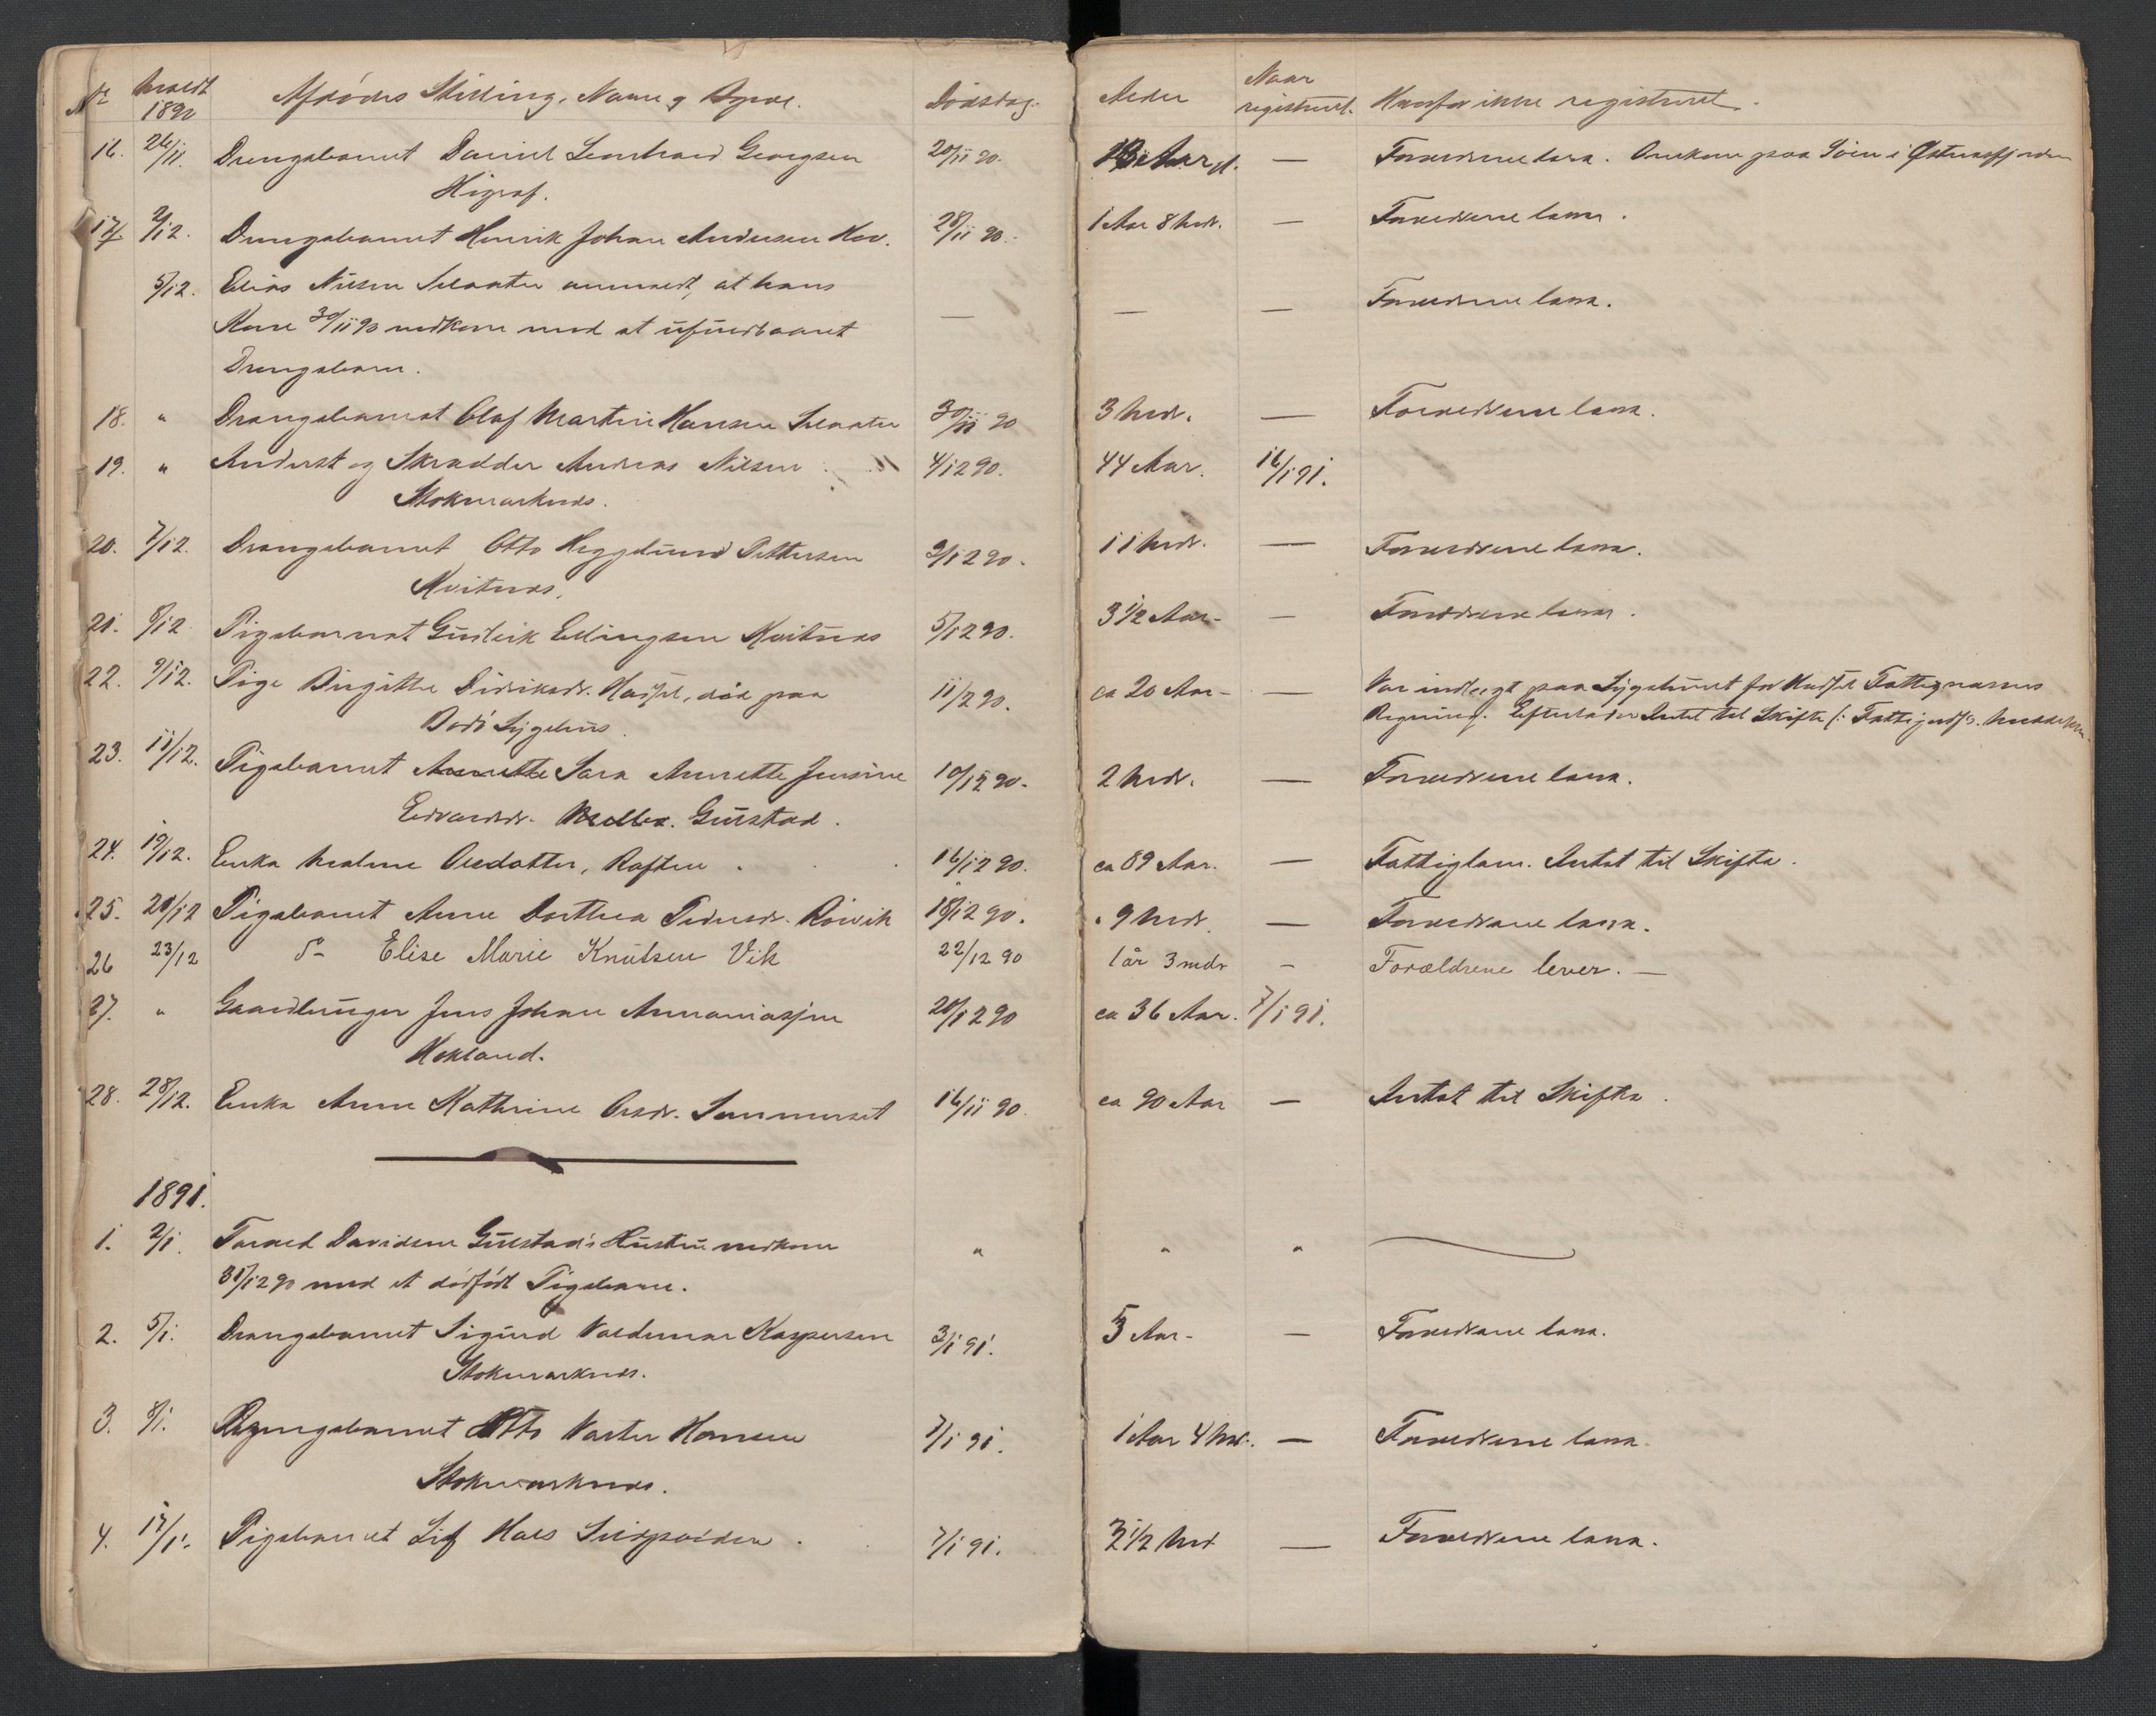 No Meldt 1890 Afdødes Stilling, Navn og Bopæl. Dødsdag. Alder Naar registreret. Hvorfor ikke registreret.
16. 26/11. Drengebarnet Daniel Leonhard Georgsen 20/11 90. Aar — Forældrene leve. Omkom paa Søen i
Higraf.
17. 2/12. Drengebarnet Henrik Johan Andersen Hov. 28/11 90. 1 Aar 8 Mdr. — Forældrene leve.
5/12. Elias Nilsen Selaater anmeldt, at hans — — — Forældrene leve.
Kone 30/11 90 nedkom med et ufuldbaaret
Drengebarn.
18. " Drengebarnet Olaf Martin Hansen Selaater 30/11 90 3 Mdr. — Forældrene leve.
19. " Inderst og Skrædder Andreas Nilsen 4/12 90. 44 Aar. 16/1 91.
Stokmarknæs.
20. 7/12. Drengebarnet Otto Heggelund Pettersen 2/12 90. 11 Mdr. — Forældrene leve.
Kvitnæs.
21. 8/12 Pigebarnet Gudrik Ellingsen Kvitnæs 5/12 90. 3 1/2 Aar — Forældrene leve.
22. 9/12. Pige Birgitte Didriksdr. Hadsel, død paa 11/2 90. ca 20 Aar — Var indlagt paa Sygehuset for Hadsel Fattigvæsens
Bodø Sygehus. Regning. Efterlader Intet til Skifte
23. 11/12. Pigebarnet Annette Sara Annette Jensine 10/12 90. 2 Mdr. — Forældrene leve.
Edvardsdr. Melbo. Gulstad.
24. 19/12. Enka Malene Olsdatter, Raften. 16/12 90. ca 89 Aar. — Fattiglem. Intet til Skifte.
25. 20/12 Pigebarnet Anne Dorthea Pedersdr. Roivik 18/12 90. 9 Mdr. — Forældrene leve.
26 23/12 do Elise Marie Knutsen Vik 22/12 90 1 år 3 mdr - Forældrene lever. —
27. " Gaardbruger Jens Johan Annaniassen 20/12 90 ca 36 Aar. 7/1 91.
Hokland.
28. 28/12. Enke Anne Kathrine Olsdr. Sommerset 16/11 90. ca 90 Aar — Intet til Skifte.
1891.
1. 2/1. Davidsen Gulstad's Hustru nedkom " " "
31/12 90 med et dødfødt Pigebarn.
2. 5/1. Drengebarnet Sigurd Valdemar Kaspersen 3/1 91. 5 Aar — Forældrene leve.
Stokmarknæs.
3. 8/1. Drengebarnet Otto Hansen 7/1 91. 1 Aar 4 Mdr. — Forældrene leve.
Stokmarknæs.
4. 17/1. Pigebarnet 7/1 91. 3 1/2 Md — Forældrene leve.